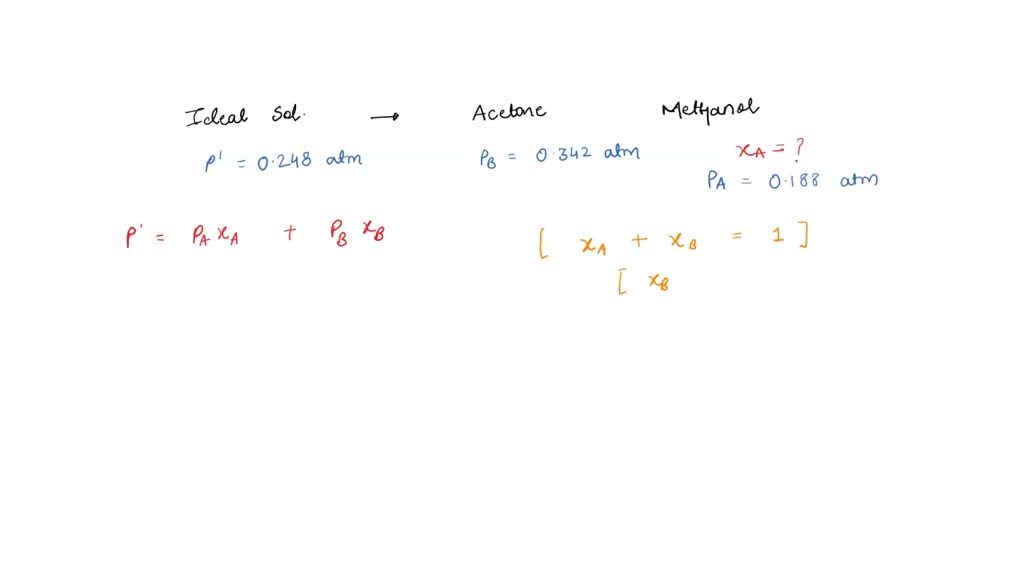 Ideal Sol. → Acetone Methanol
P' = 0.248 atm P_B = 0.342 atm x_A = ?
P_A = 0.188 atm
P' = P_A x_A + P_B x_B [ x_A + x_B = 1 ]
[ x_B